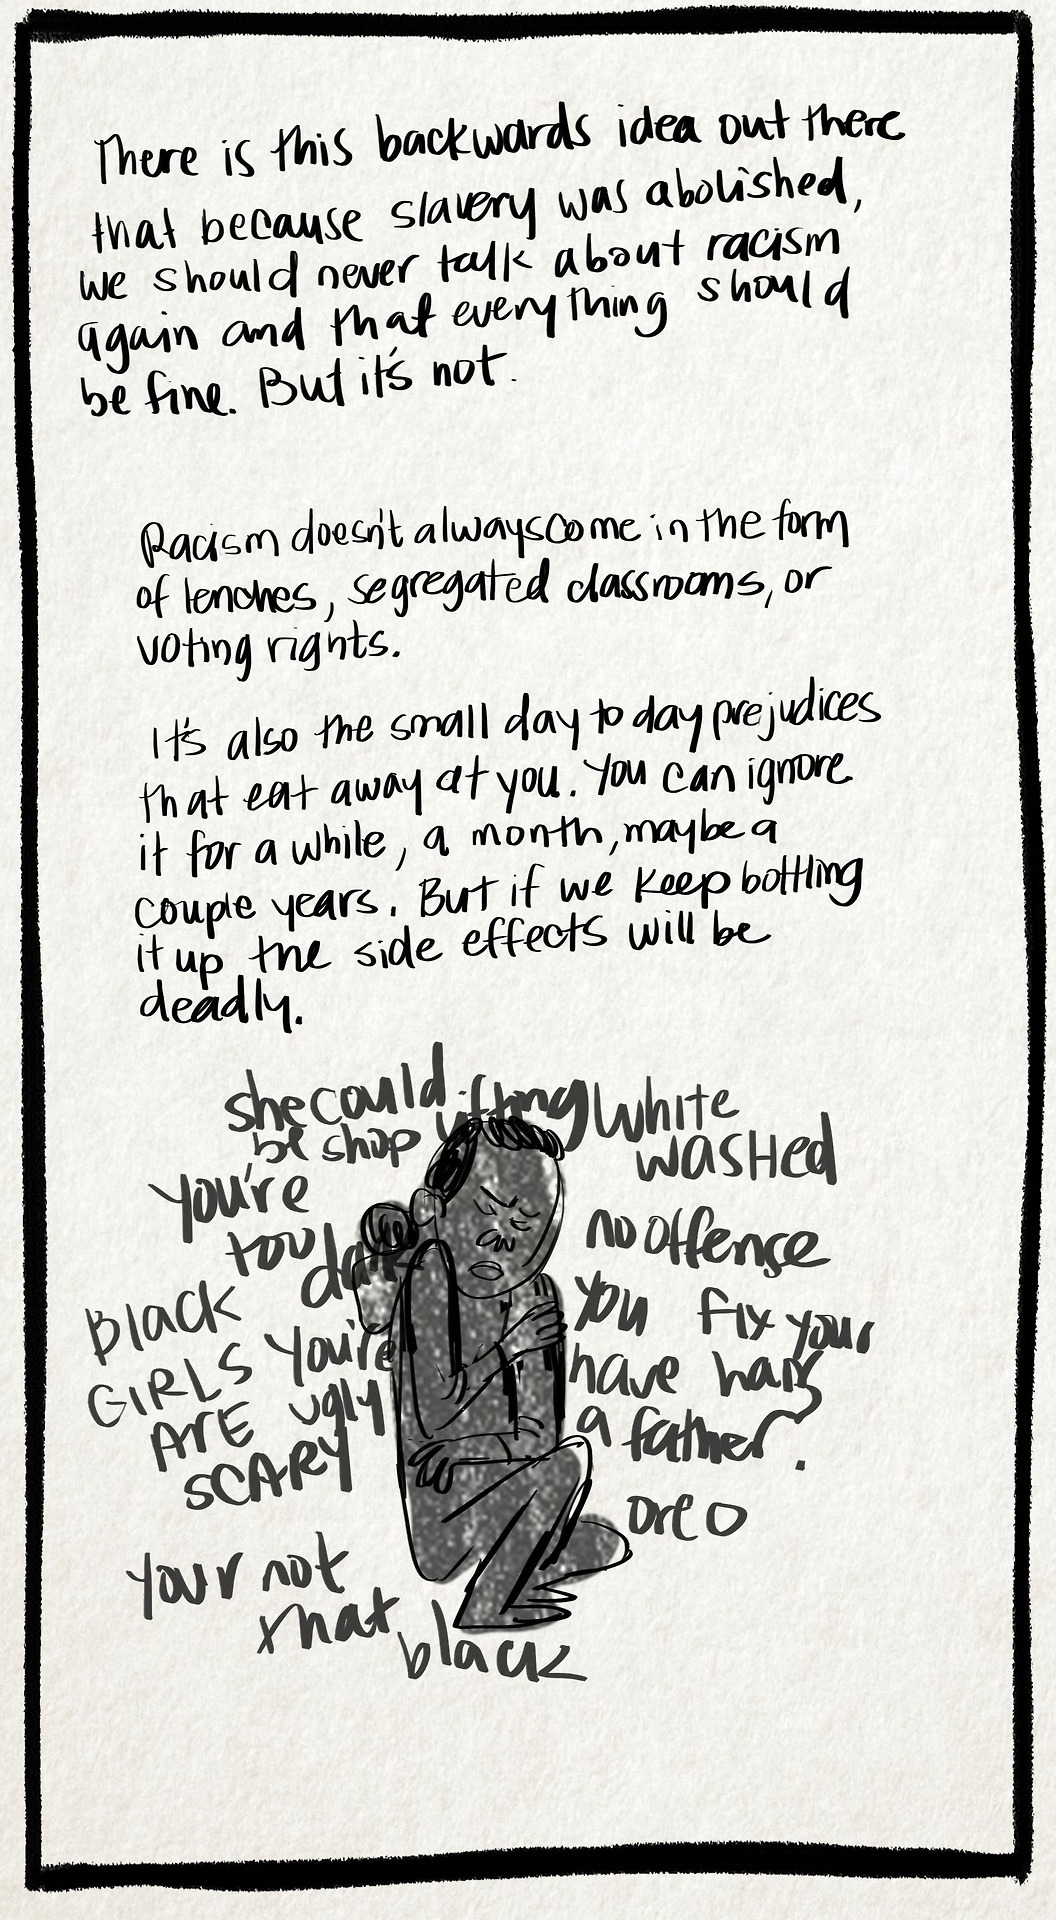 There is this backwards idea out there
that because slavery was abolished,
we should never talk about racism
again and that everything should
be fine. But it's not.
Racism doesn't always come in the form
of lenches, segregated classrooms, or
voting rights.
It's also the small day to day prejudices
that eat away at you. You can ignore
it for a while, a month, maybe a
couple years. But if we keep bottling
it up the side effects will be
deadly.
she could
be shop lifting
White
washed
You're
too
dark
no offense
Black
GIRLS
ARE
SCARY
You're
ugly
You
have
a father?
fix your
hair
oreo
your not
that
black